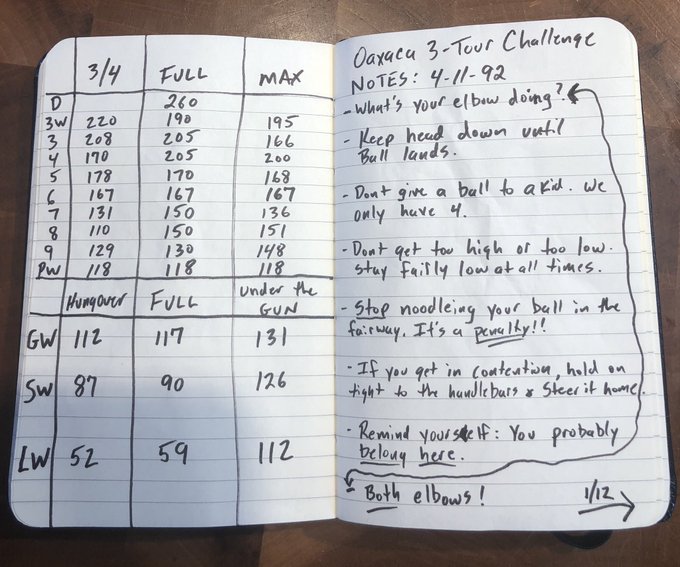 3/4 FULL MAX
D 260
3W 220 190 195
3 208 205 166
4 170 205 200
5 178 170 168
6 167 167 167
7 131 150 136
8 110 150 151
9 129 130 148
PW 118 118 118
Hungover FULL under the
GUN
GW 112 117 131
SW 87 90 126
LW 52 59 112
Oaxaca 3-Tour Challenge
NOTES: 4-11-92
- What's your elbow doing?
- Keep head down until
Ball lands.
- Dont give a ball to a kid. We
only have 4.
- Dont get too high or too low.
stay fairly low at all times.
- Stop noodleing your ball in the
fairway. It's a penalty!!
- If you get in contention, hold on
tight to the handlebars & Steer it home.
- Remind yourself: You probably
belong here.
- Both elbows!
1/12